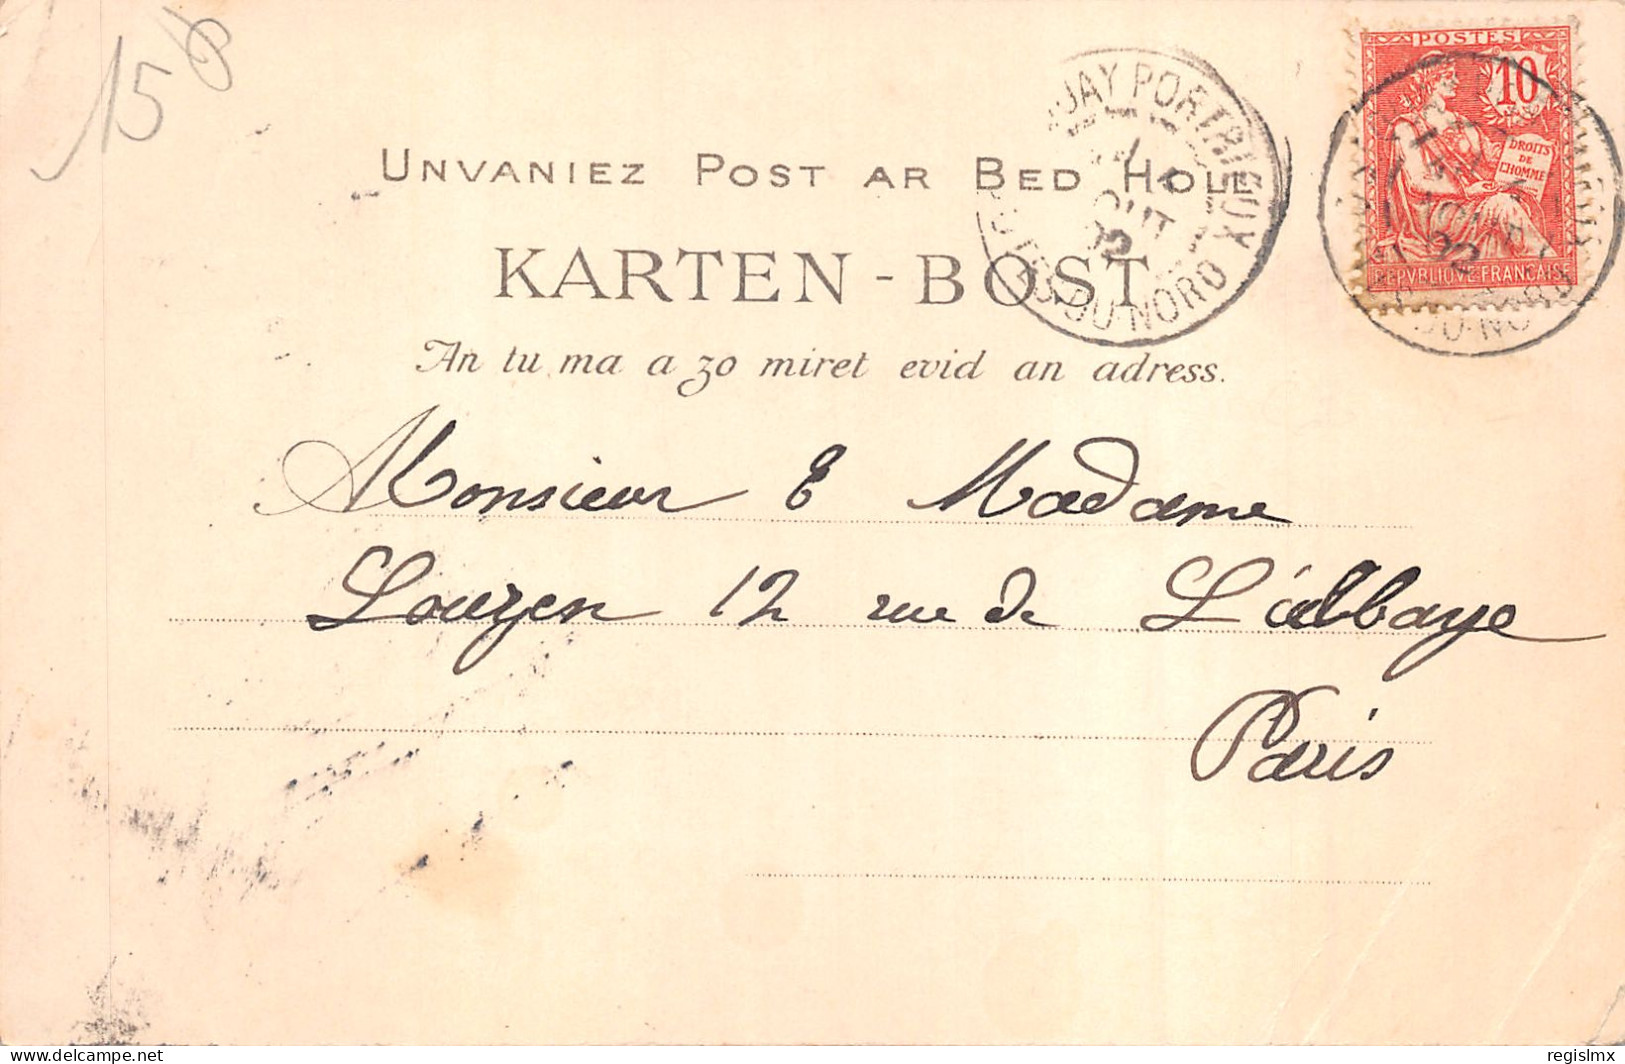 150
UNVANIEZ POST AR BED HOLL
KARTEN-BOST
An tu ma a zo miret evid an adress.
Monsieur & Madame
Louzen 12 rue de L'abbaye
Paris
UAY PORTRIEUX
AOUT
02
CÔTES-DU-NORD
POSTES
10
DROITS
DE
L'HOMME
REPVBLIQVE FRANCAISE
DU-NORD
www.delcampe.net
regislmx